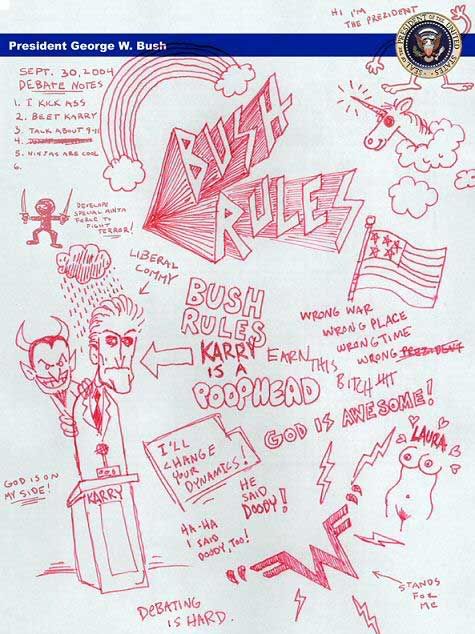 HI I'M
THE PRESIDENT
SEAL OF THE PRESIDENT OF THE UNITED STATES
President George W. Bush
SEPT. 30, 2004
DEBATE NOTES
1. I KICK ASS
2. BEET KARRY
3. TALK ABOUT 9-11
4.
5. NINJAS ARE COOL
6.
BUSH
RULES
DEVELOPE
SPECIAL NINJA
FORCE TO
FIGHT
TERROR!
LIBERAL
COMMY
BUSH
RULES
KARRY
IS A
POOPHEAD
WRONG WAR
WRONG PLACE
WRONG TIME
WRONG PREZIDENT
EARN THIS
BITCH HIT
GOD IS AWESOME!
LAURA
I'LL
CHANGE
YOUR
DYNAMICS!
GOD IS ON
MY SIDE!
KARRY
HE
SAID
DOODY!
HA-HA
I SAID
DOODY, TOO!
"W F"
STANDS
FOR
ME
DEBATING
IS HARD.